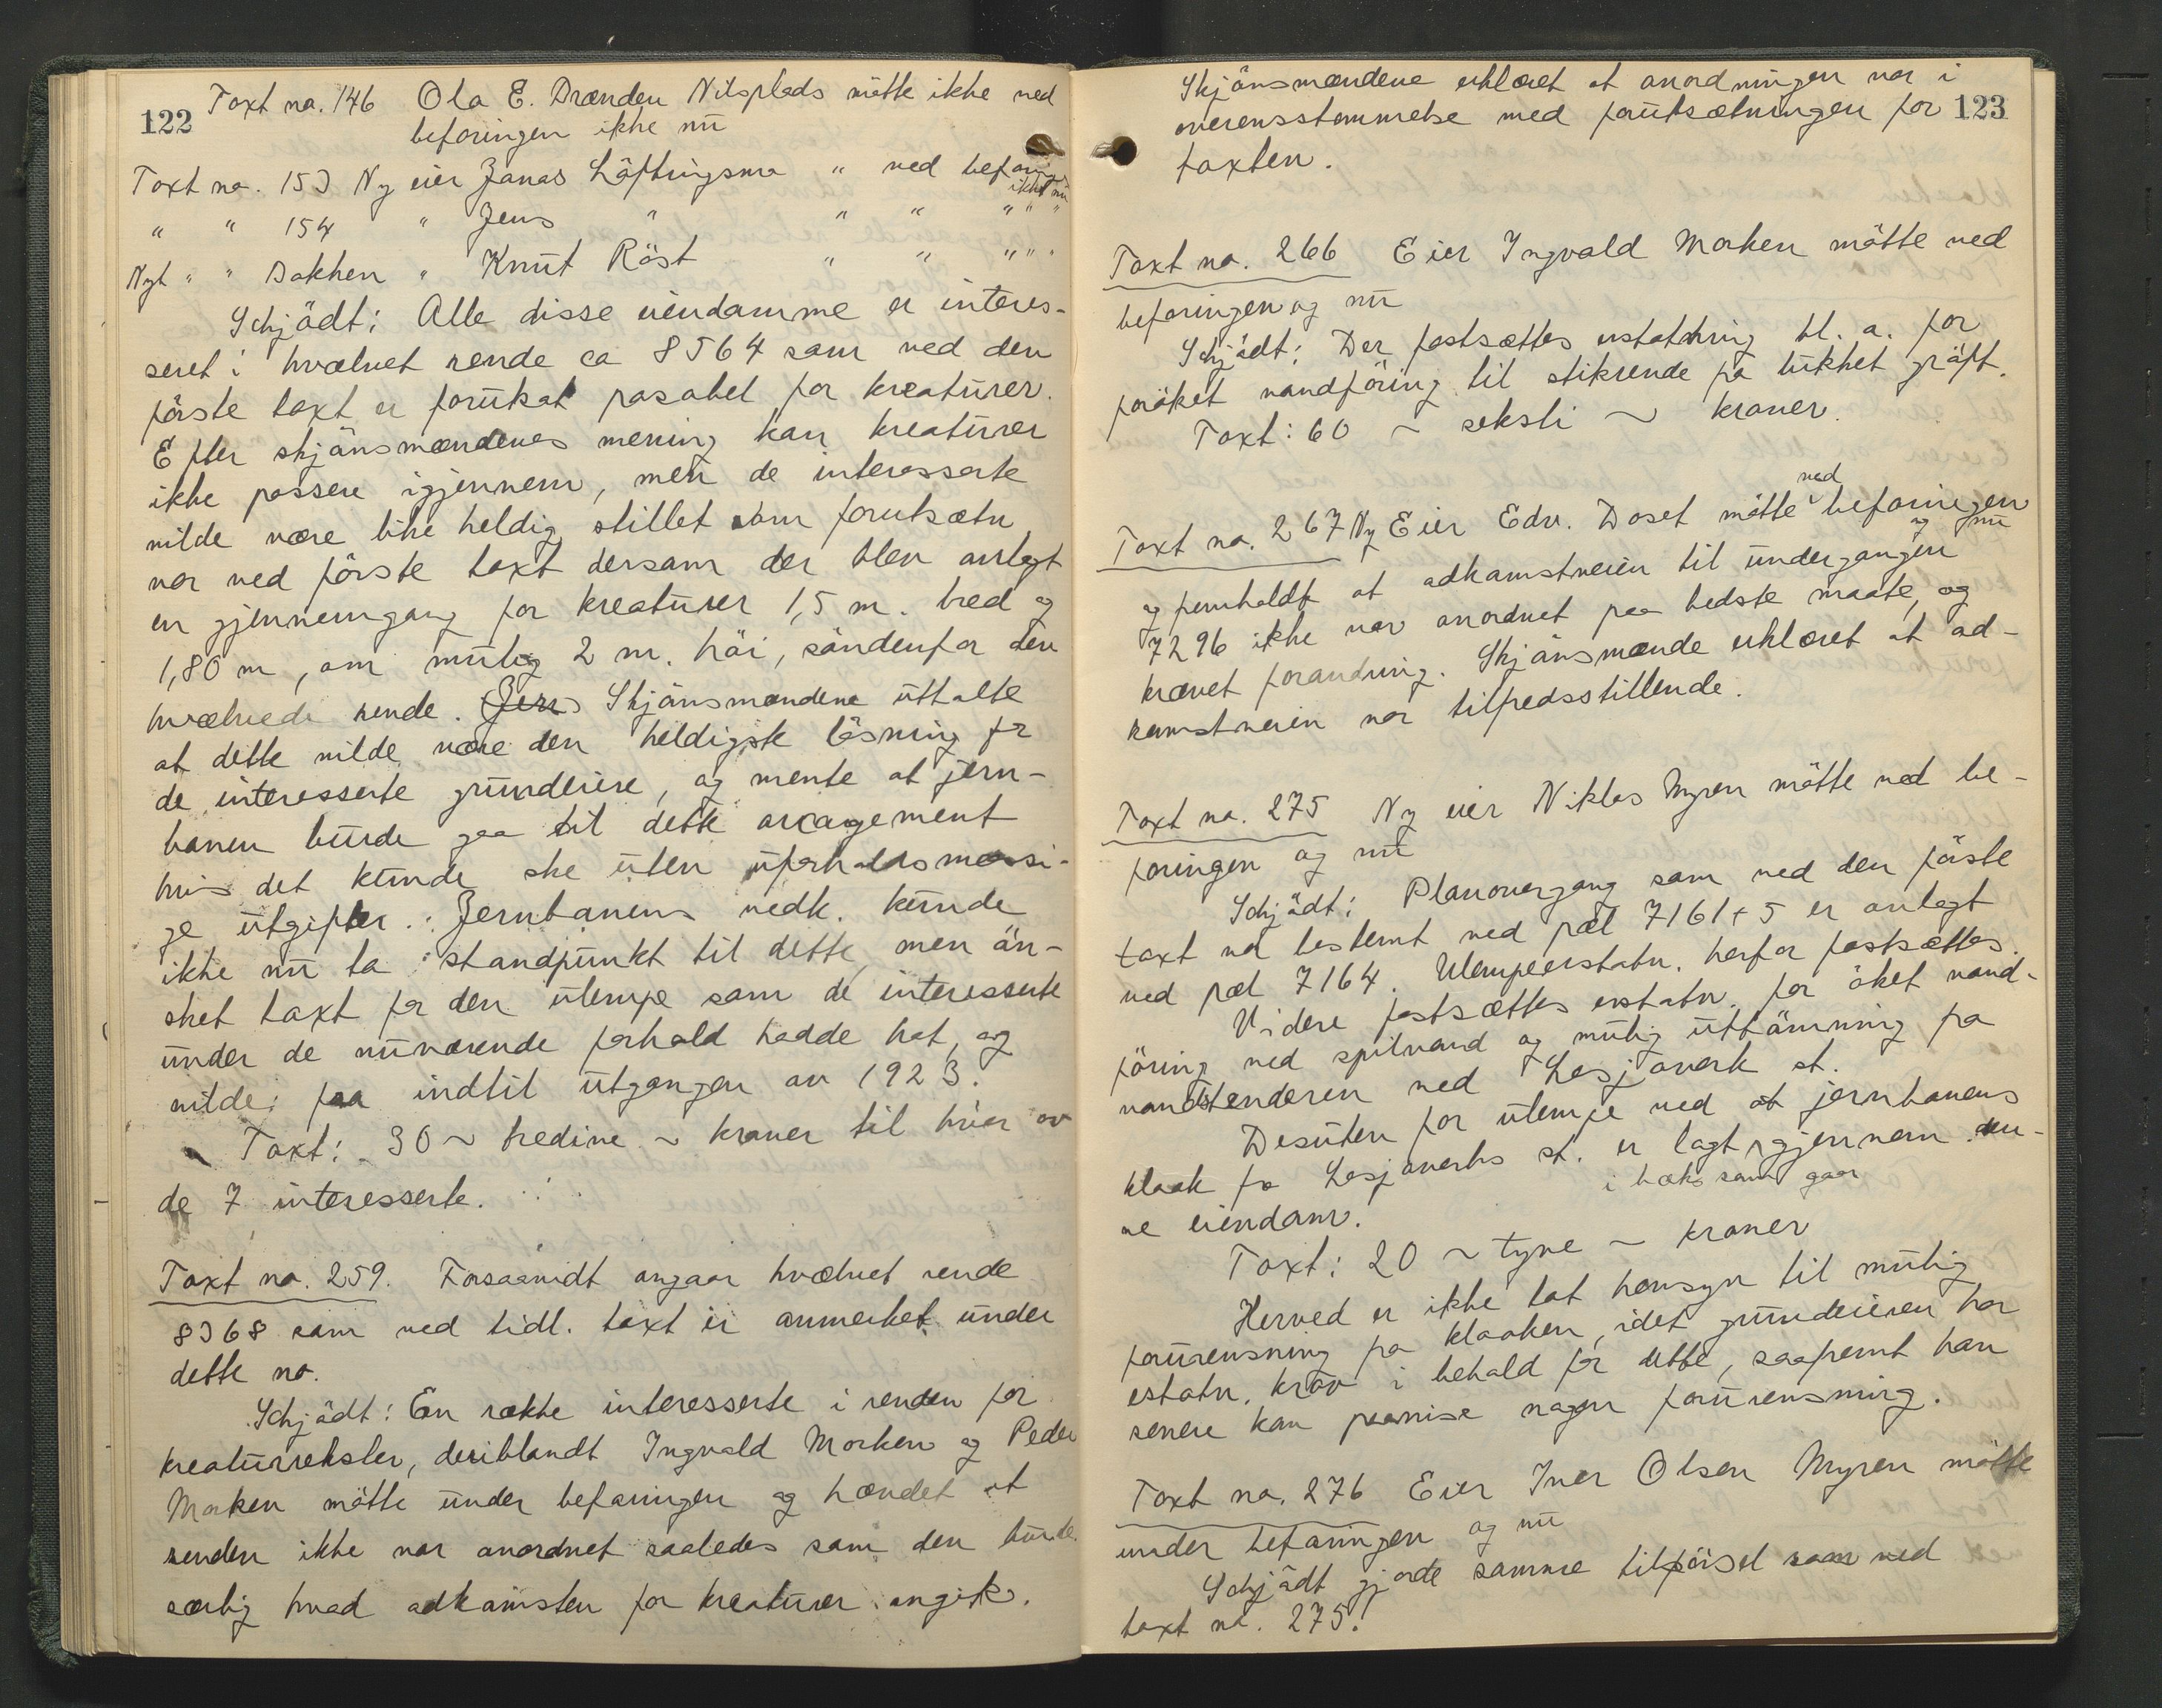 122
Taxt no. 146 Ola E. Drænden Nilsplads mötte ikke ved
beforingen ikke nu
Taxt no. 153 Ny eier Jonas Löftingsmo " ved beforing
ikke nu
" " 154 " Jens " " " " " "
Nyt " " Bakken " Knut Röst " " " " "
Schjödt: Alle disse eiendomme er interes-
seret i hvælvet rende ca 8564 som ved den
förste taxt er forutsat pasabel for kreaturer.
Efter skjönsmændenes mening kan kreaturer
ikke passere igjennem, men de interesserte
vilde være like heldig stillet som forutsætn
var ved förste taxt dersom der blev anlagt
en gjennemgang for kreaturer 1,5 m. bred og
1,80 m, om mulig 2 m. höi, söndenfor den
hvælvede rende. Jens Skjönsmændene uttalte
at dette vilde være den heldigste lösning for
de interesserte grundeiere, og mente at jern-
banen burde gaa til dette arragement
hvis det kunde ske uten uforholdsmæssi-
ge utgifter. Jernbanens vedk. kunde
ikke nu ta standpunkt til dette, men ön-
sket taxt for den ulempe som de interesserte
under de nuværende forhold hadde hat, og
vilde faa indtil utgangen av 1923.
Taxt: 30 ~ tredive ~ kroner til hver av
de 7 interesserte.
Taxt no. 259. Forsaavidt angaar hvælvet rende
8368 som ved tidl. taxt er anmerket under
dette no.
Schjödt: En række interesserte i renden for
kreaturrekster, deriblandt Ingvald Morken og Peder
Morken mötte under beforingen og hævdet at
renden ikke var anordnet saaledes som den burde
særlig hvad adkomsten for kreaturer angik.
123
Skjönsmændene erklæret at anordningen var i
overensstemmelse med forutsætningen for
taxten.
Taxt no. 266 Eier Ingvald Morken mötte ved
beforingen og nu
Schjödt: Der fastsættes erstatning bl. a. for
foröket vandföring til stikrende fra lukket gröft.
Taxt: 60 ~ seksti ~ kroner.
Taxt no. 267 Ny Eier Edv. Doset mötte ved beforingen
og nu
og fremholdt at adkomstveien til undergangen
7296 ikke var anordnet paa bedste maate, og
krævet forandring. Skjönsmænde erklæret at ad-
komstveien var tilfredsstillende.
Taxt no. 275 Ny eier Niklas Myren mötte ved be-
foringen og nu
Schjödt: Planovergang som ved den förste
taxt var bestemt ved pæl 7161+5 er anlagt
ved pæl 7164. Ulempeerstatn. herfor fastsættes.
Videre fastsættes erstatn. for öket vand-
föring ved spilvand og mulig uttömning fra
vandstenderen ved Lesjaverk st.
Desuten for ulempe ved at jernbanens
kloak fra Lesjaverks st. er lagt i bæk som gaar gjennem den-
ne eiendom.
Taxt: 20 ~ tyve ~ kroner
Herved er ikke tat hensyn til mulig
forurensning fra kloaken, idet grundeieren har
erstatn. krav i behold for dette, saafremt han
senere kan paavise nogen forurensning.
Taxt no. 276 Eier Iver Olsen Myren mötte
under beforingen og nu
Schjödt gjorde samme tilförsel som ved
taxt no. 275!